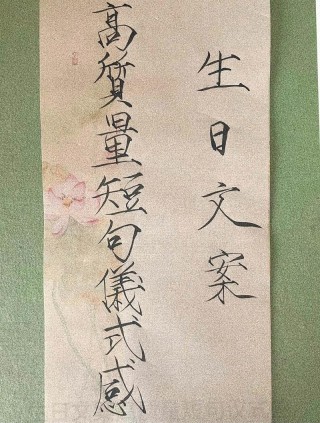 生日文案
高質量短句儀式感